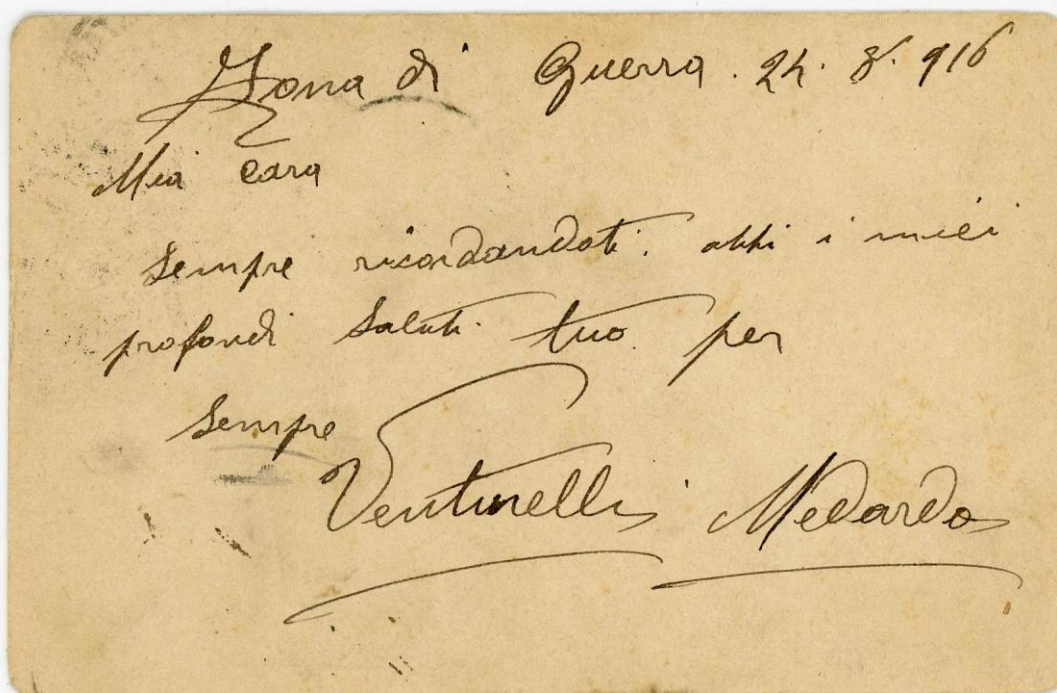 Zona di Guerra. 24. 8. 916
Mia cara
Sempre ricordandoti. abbi i miei
profondi Saluti. tuo per
Sempre
Venturelli Medardo